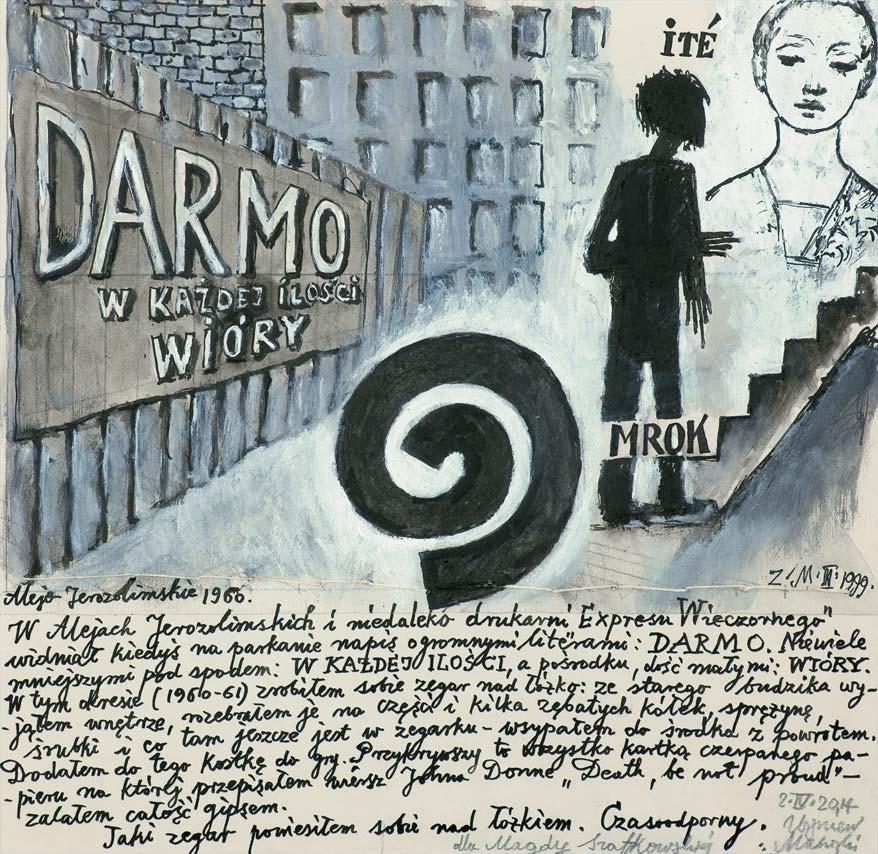 iTÉ
DARMO
W KAŻDEJ ILOŚCI
WIÓRY
MROK
Z.M. III 1999.
Aleje Jerozolimskie 1960.
W Alejach Jerozolimskich i niedaleko drukarni Expresu Wieczornego"
widniał kiedyś na parkanie napis ogromnymi literami: DARMO. Niewiele
mniejszymi pod spodem: W KAŻDEJ ILOŚCI, a pośrodku, dość małymi: WIÓRY.
W tym okresie (1960-61) zrobiłem sobie zegar nad łóżko: ze starego budzika wy-
-jąłem wnętrze, rozebrałem je na części i kilka zębatych kółek, sprężynę,
śrubki i co tam jeszcze jest w zegarku - wsypałem do środka z powrotem.
Dodałem do tego kostkę do gry. Przykrywszy to wszystko kartką czerpanego pa-
-pieru na której przepisałem wiersz Johna Donne „Death, be not proud" -
zalałem całość gipsem.
Jaki zegar powiesiłem sobie nad łóżkiem. Czasoodporny.
2.IV.2014
dla Magdy